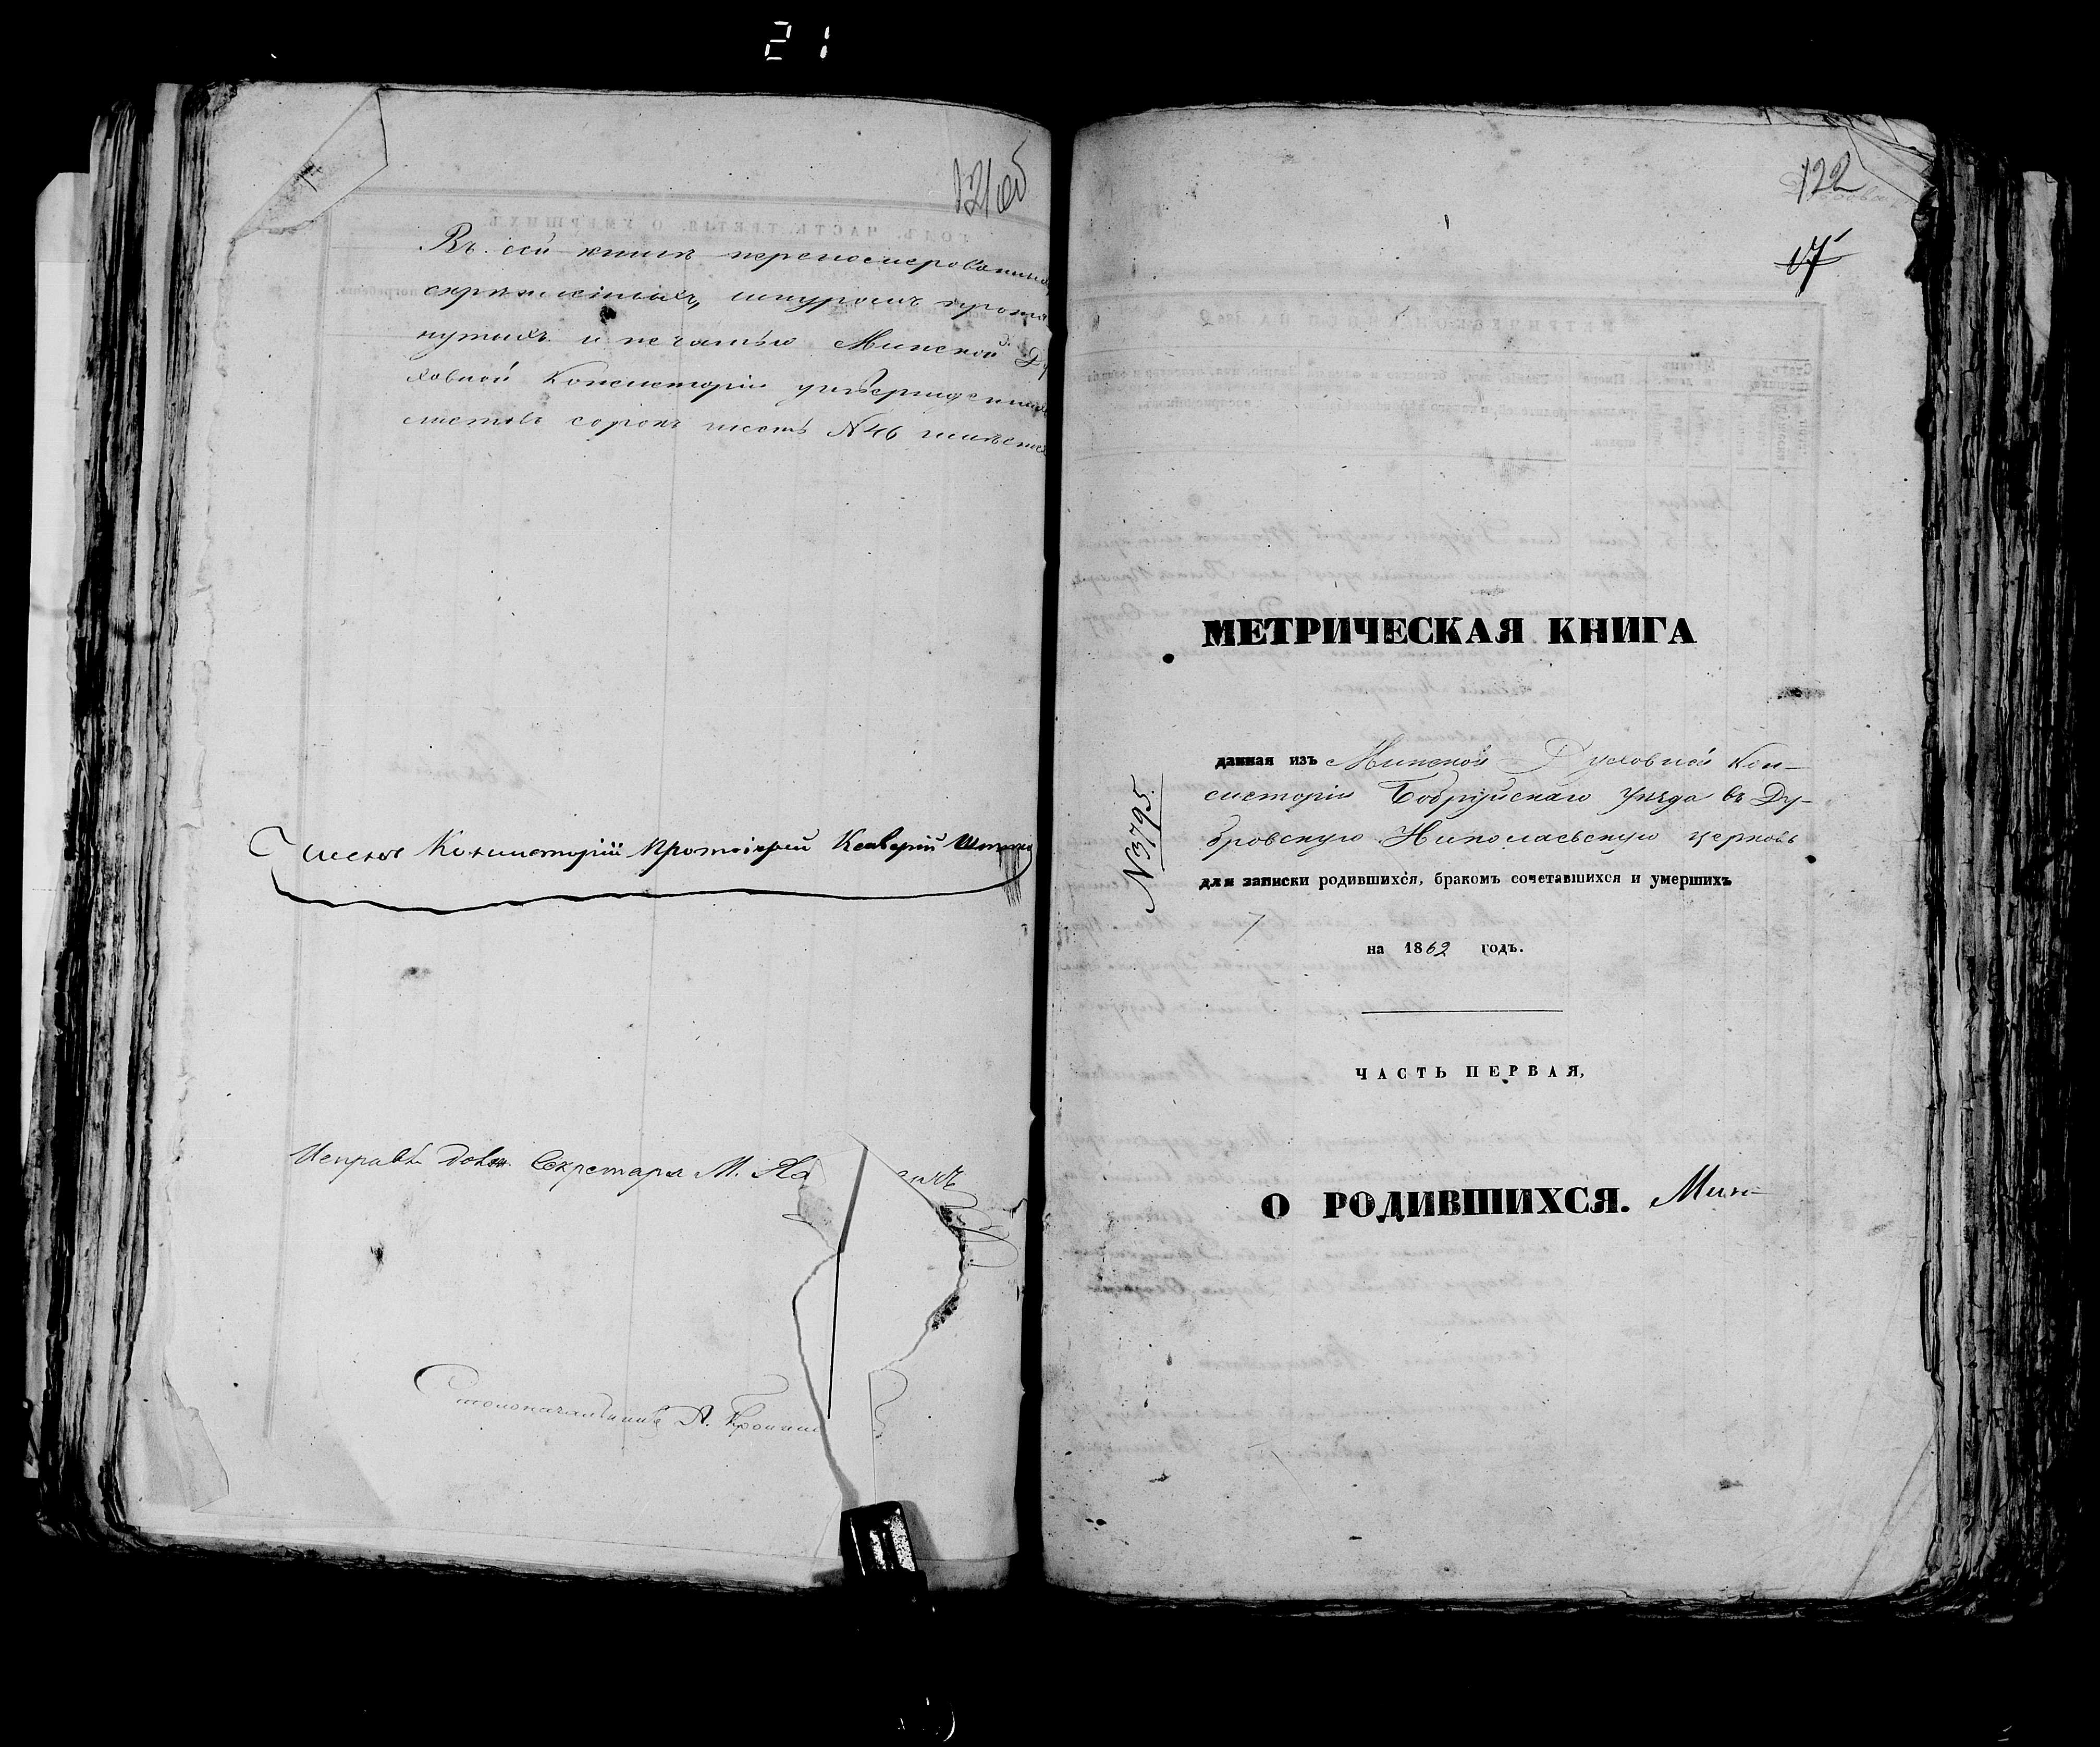 21
121 об
Въ сей книгѣ перенумерованныхъ
скрѣпленныхъ, шнуромъ протя
нутыхъ и печатью Минской Ду
ховной Консисторіи утвержденныхъ
листовъ сорокъ шесть N 46 имѣется
Членъ Консисторіи Протоіерей Ксаверій
Исправл. долж. Секретаря М.
Столоначальникъ А.
122
17
МЕТРИЧЕСКАЯ КНИГА
данная изъ Минской Духовной Кон-
систоріи Бобруйскаго уѣзда въ Ду-
бровскую Николаевскую церковь
N 3795.
для записки родившихся, бракомъ сочетавшихся и умершихъ
на 1862 годъ.
ЧАСТЬ ПЕРВАЯ,
О РОДИВШИХСЯ. Мин-